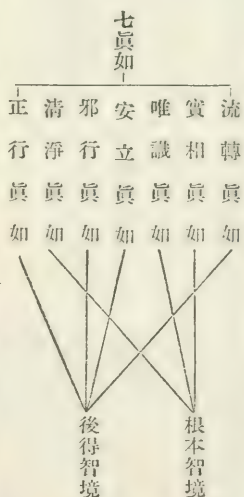 七眞如
流轉眞如
實相眞如
唯識眞如
安立眞如
邪行眞如
清淨眞如
正行眞如
根本智境
後得智境